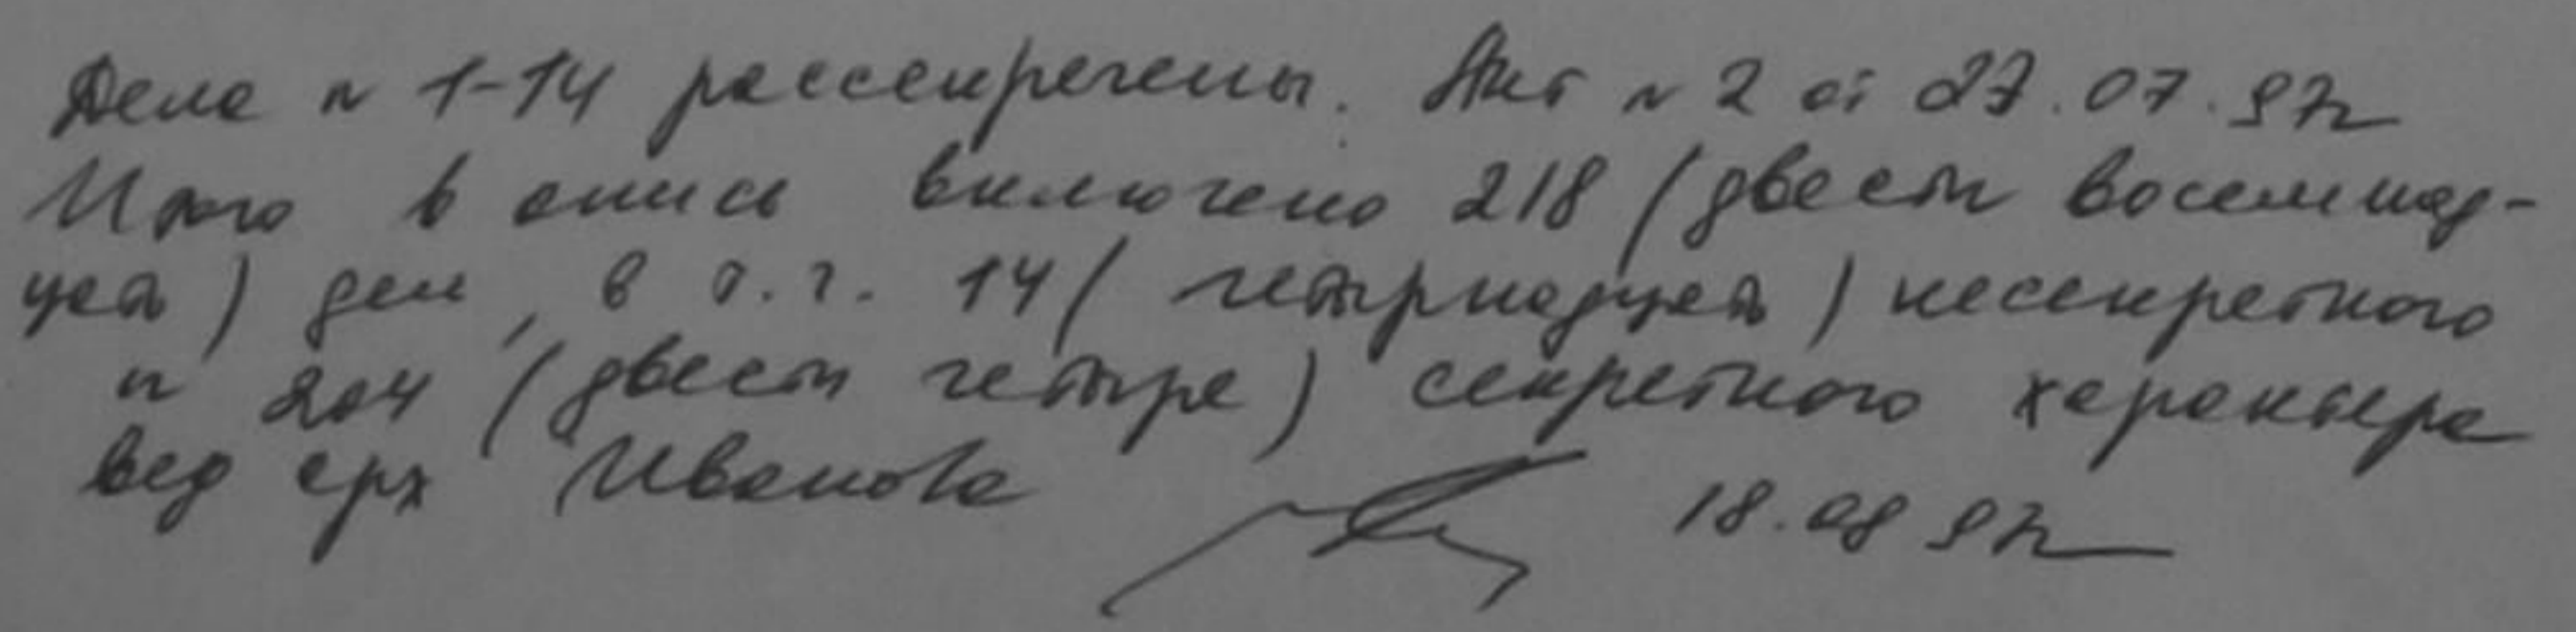 Дела № 1-14 рассекречены. Акт № 2 от 27.07.92г
Итого в опись включено 218 (двести восемнад-
цать) дел, в т.ч. 14 (четырнадцать) несекретного
и 204 (двести четыре) секретного характера
вед арх Иванова 18.08 92г